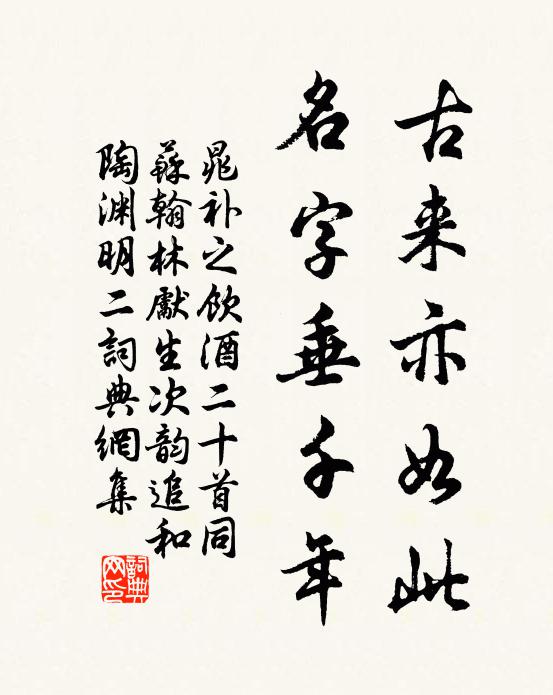 古来亦如此
名字垂千年
晁补之飲酒二十首同
蘇翰林獻生次韵追和
陶渊明二詞典網集
詞典
网印